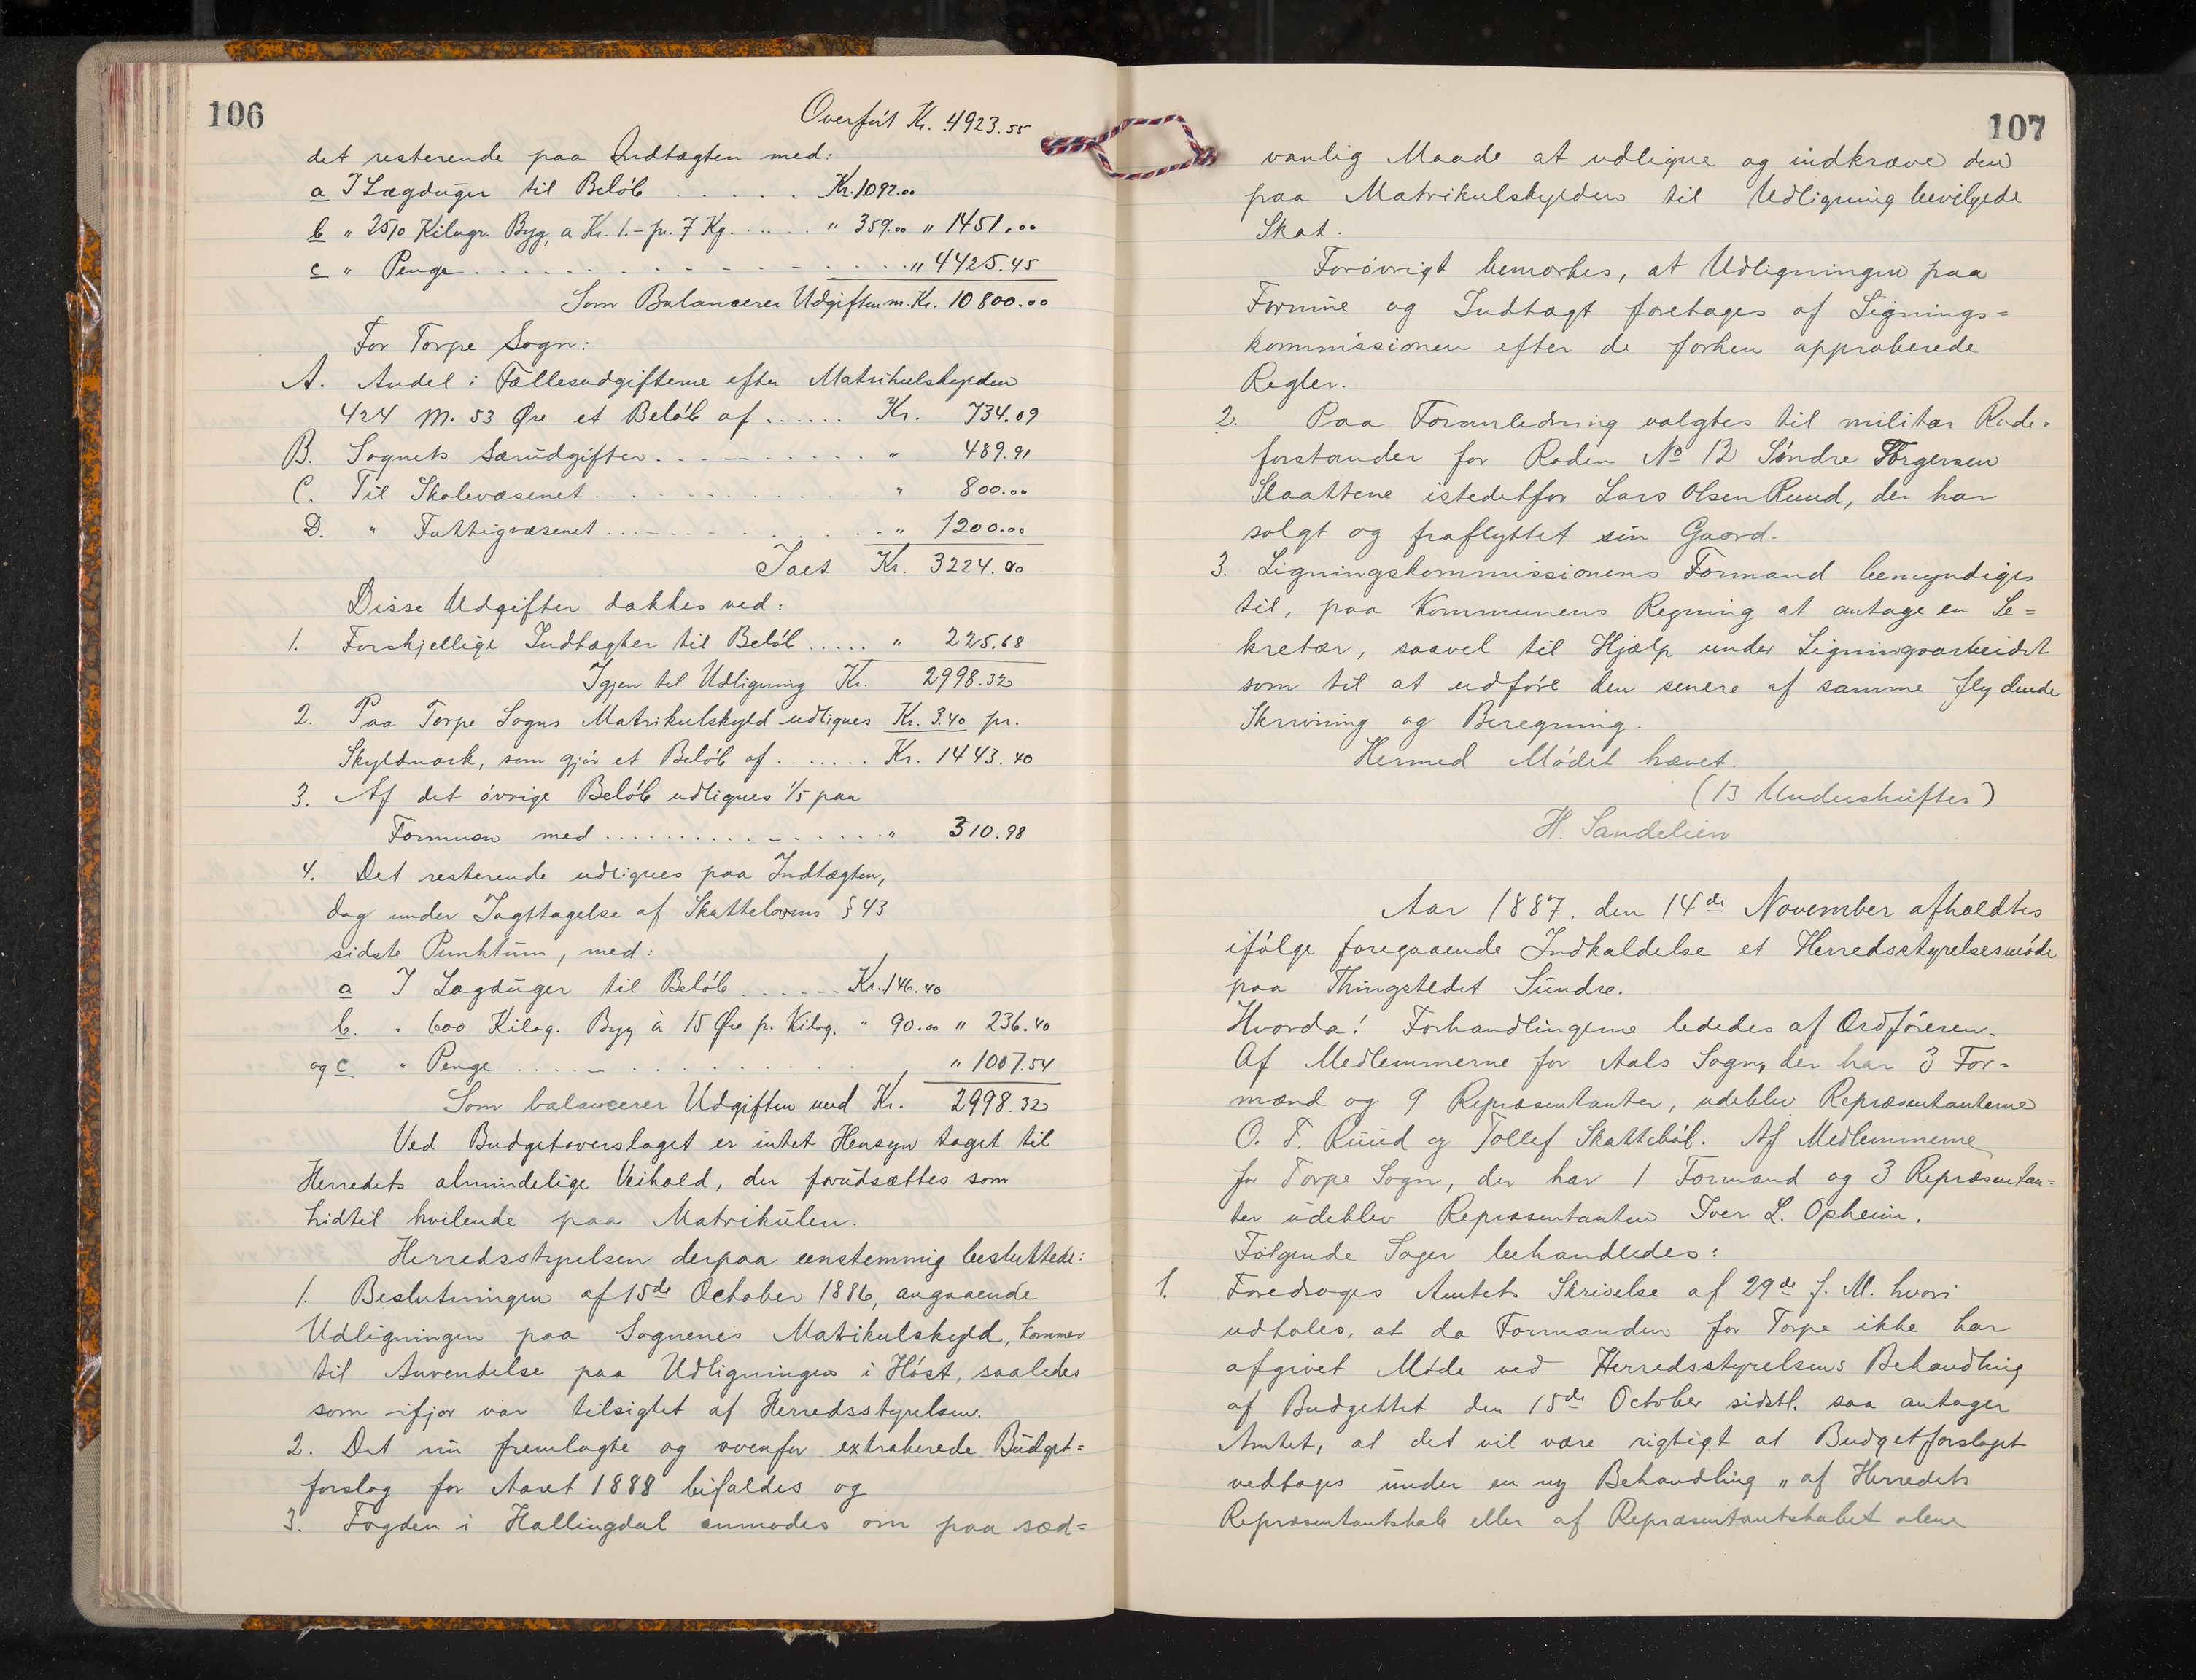 106
Overført Kr. 4923.55
det resterende paa Indtægten med:
a I Lægduger til Beløb ...... Kr. 1092.00
b " 2510 Kilogr. Byg, a Kr. 1.- pr. 7 Kg. ...... " 359.00 " 1451.00
c " Penge ............ " 4425.45
Som Balancerer Udgiften m. Kr. 10800.00
For Torpe Sogn:
A. Andel i Fællesudgifterne efter Matrikulskylden
424 M. 53 Øre et Beløb af ...... Kr. 734.09
B. Sognets Særudgifter .......... " 489.91
C. Til Skolevæsenet .......... " 800.00
D. " Fattigvæsenet .......... " 1200.00
Ialt Kr. 3224.00
Disse Udgifter dækkes ved:
1. Forskjellige Indtægter til Beløb ..... " 225.68
Igjen til Udligning Kr. 2998.32
2. Paa Torpe Sogns Matrikulskyld udlignes Kr. 3.40 pr.
Skyldmark, som gjør et Beløb af ....... Kr. 1443.40
3. Af det øvrige Beløb udlignes 1/5 paa
Formuen med ............ " 310.98
4. Det resterende udlignes paa Indtægten,
dog under Iagttagelse af Skattelovens § 43
sidste Punktum, med:
a I Lægduger til Beløb ...... Kr. 146.40
b. " 600 Kilog. Byg à 15 Øre pr. Kilog. " 90.00 " 236.40
og c " Penge ............ " 1007.54
Som balancerer Udgiften med Kr. 2998.32
Ved Budgetoverslaget er intet Hensyn taget til
Herredets almindelige Veihold, der forudsættes som
hidtil hvilende paa Matrikulen.
Herredsstyrelsen derpaa eenstemmig besluttede:
1. Beslutningen af 15de October 1886, angaaende
Udligningen paa Sognenes Matrikulskyld, kommer
til Anvendelse paa Udligningen i Høst, saaledes
som ifjor var tilsigtet af Herredsstyrelsen.
2. Det nu fremlagte og ovenfor extraherede Budget=
forslag for Aaret 1888 bifaldes og
3. Fogden i Hallingdal anmodes om paa sæd=
107
vanlig Maade at udligne og indkræve den
paa Matrikulskylden til Udligning bevilgede
Skat.
Forøvrigt bemærkes, at Udligningen paa
Formue og Indtægt foretages af Lignings=
kommissionen efter de forhen approberede
Regler.
2. Paa Foranledning valgtes til militær Rode=
forstander for Roden No 12 Søndre Torgersen
Slaattene istedetfor Lars Olsen Ruud, der har
solgt og fraflyttet sin Gaard.
3. Ligningskommissionens Formand bemyndiges
til, paa Kommunens Regning at antage en Se=
kretær, saavel til Hjælp under Ligningsarbeidet
som til at udføre den senere af samme flydende
Skrivning og Beregning.
Hermed Mødet hævet.
(13 Underskrifter)
H. Sandelien
Aar 1887. den 14de November afholdtes
ifølge foregaaende Indkaldelse et Herredsstyrelsesmøde
paa Thingstedet Sundre.
Hvorda! Forhandlingerne lededes af Ordføreren.
Af Medlemmerne for Aals Sogn, der har 3 For=
mænd og 9 Repræsentanter, udeblev Repræsentanterne
O. T. Ruud og Tollef Skattebøl. Af Medlemmerne
for Torpe Sogn, der har 1 Formand og 3 Repræsentan=
ter udeblev Repræsentanten Iver L. Opheim.
Følgende Sager behandledes:
1. Foredroges Amtets Skrivelse af 29de f. M. hvori
udtales, at da Formanden for Torpe ikke har
afgivet Møde ved Herredsstyrelsens Behandling
af Budgettet den 15de October sidstl. saa antager
Amtet, at det vil være rigtigt at Budgetforslaget
vedtages under en ny Behandling „af Herredets
Repræsentantskab eller af Repræsentantskabet alene